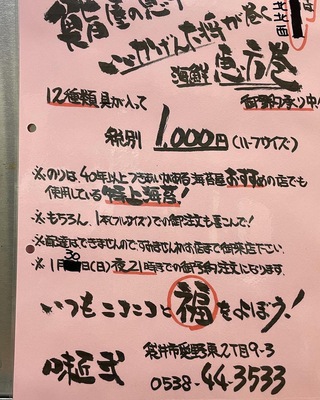 鮨屋の恵方
いいかげん大将が巻く
海鮮恵方巻
12種類具が入って
御予約承り中!
税別 1,000円(ハーフサイズ)
※のりは、40年以上つきあいがある海苔屋おすすめの店でも
使用している特上海苔!
※もちろん、1本(フルサイズ)での御注文も喜んで!
※配達はできませんので、すみませんがお店まで御来店下さい。
※1月30(日)夜21時までの御予約注文になります。
いつもニコニコと福をよぼう!
味匠 弐
袋井市愛野東2丁目9-3
0538-44-3533